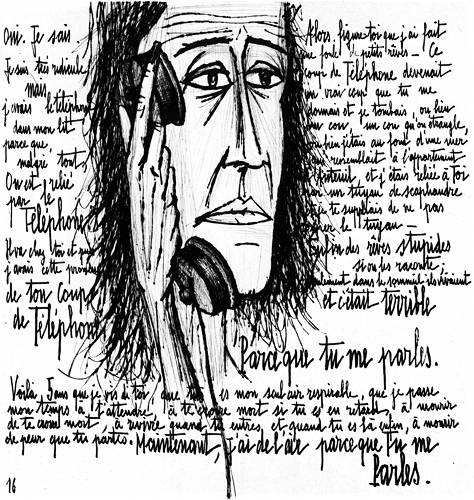 Oui. Je sais
Je suis très ridicule
mais
j'avais le téléphone
dans mon lit
parce que,
malgré tout,
On est relié
par le
Téléphone
Il va chez toi et puis
j'avais cette promesse
de ton Coup
de Téléphone
Alors, figure-toi que j'ai fait
une foule de petits rêves — Ce
coup de Téléphone devenait
un vrai coup que tu me
donnais et je tombais, ou bien
un cou, un cou qu'on étrangle,
ou bien j'étais au fond d'une mer
qui ressemblait à l'appartement
d'Auteuil, et j'étais reliée à Toi
par un tuyau de scaphandre
et je te suppliais de ne pas
couper le tuyau —
Enfin des rêves stupides
si on les raconte,
seulement dans le sommeil ils vivaient
et c'était terrible
Parce que tu me parles.
Voilà, 5 ans que je vis de toi, que tu es mon seul air respirable, que je passe
mon temps à t'attendre, à te croire mort si tu es en retard, à mourir
de te croire mort, à revivre quand tu entres, et quand tu es là enfin, à mourir
de peur que tu partes. Maintenant, j'ai de l'air parce que tu me
Parles.
16